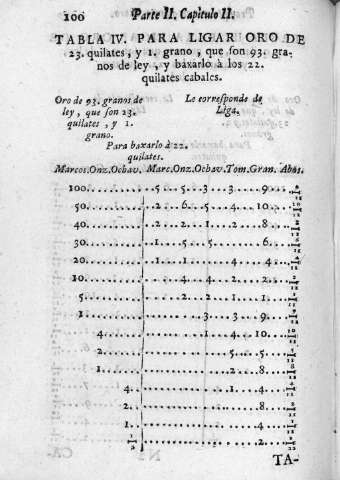 100 Parte II. Capitulo II.
TABLA IV. PARA LIGAR ORO DE
23. quilates, y 1. grano, que son 93. gra-
nos de ley, y baxarlo à los 22.
quilates cabales.
Oro de 93. granos de Le corresponde de
ley, que son 23. Liga.
quilates, y 1.
grano.
Para baxarlo à 22.
quilates.
Marcos.Onz.Ochav. Marc.Onz.Ochav.Tom.Gran. Abos.
100. 5. 5. 3. 3. 9.
50. 2. 6. 5. 4. 10.
40. 2. 2. 1. 2. 8.
30. 1. 5. 5. . 6.
20. 1. 1. . 4. 4.
10. 4. 4. 2. 2.
5. 2. 2. 1. 1.
1. 3. 3. 9.
4. 1. 4. 10.
2. 5. 5.
1. 2. 8.
4. 1. 4.
2. 8.
1. 4.
1/2 2.
TA-